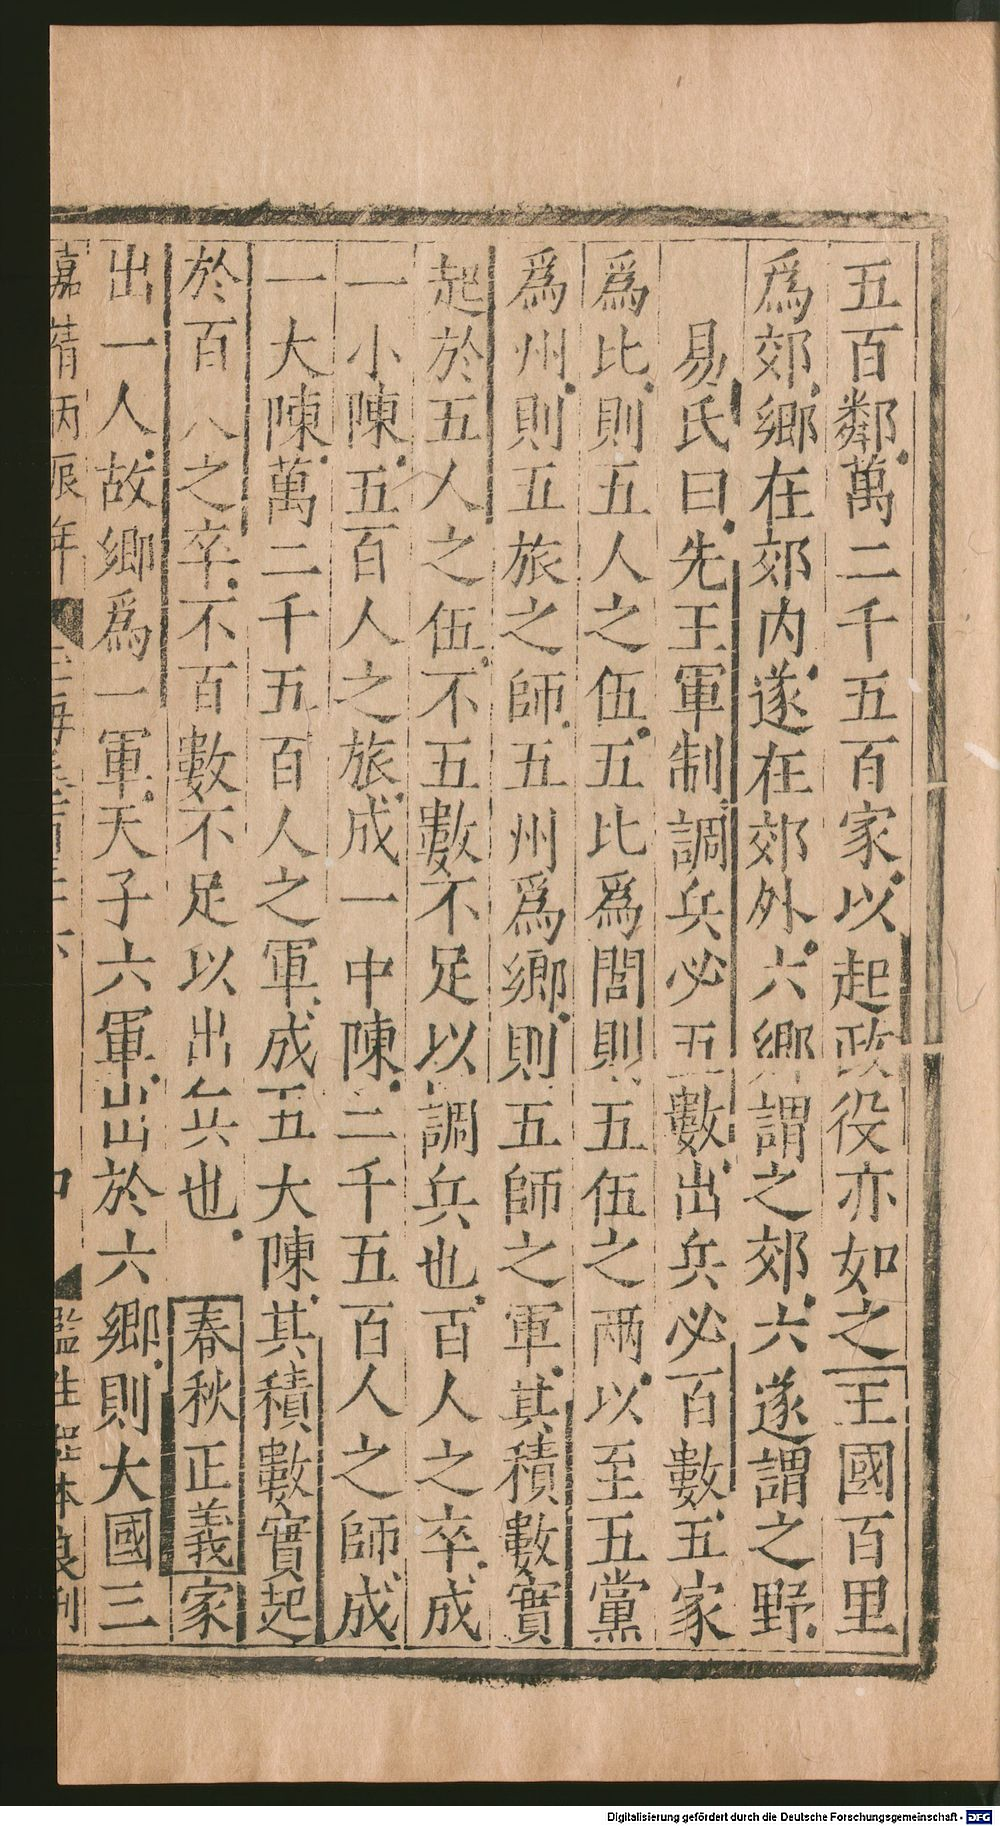 五百鄰萬二千五百家以起政役亦如之王國百里
爲郊鄉在郊内遂在郊外六鄉謂之郊六遂謂之野
易氏曰先王軍制調兵必五數出兵必百數五家
爲比則五人之伍五比爲閭則五伍之两以至五黨
爲州則五旅之師五州爲鄉則五師之軍其積數實
起於五人之伍不五數不足以調兵也百人之卒成
一小陳五百人之旅成一中陳二千五百人之師成
一大陳萬二千五百人之軍成五大陳其積數實起
於百人之卒不百數不足以出兵也春秋正義家
出一人故鄉爲一軍天子六軍出於六鄉則大國三
嘉靖丙辰年
監生程本良刊
Digitalisierung gefördert durch die Deutsche Forschungsgemeinschaft - DFG